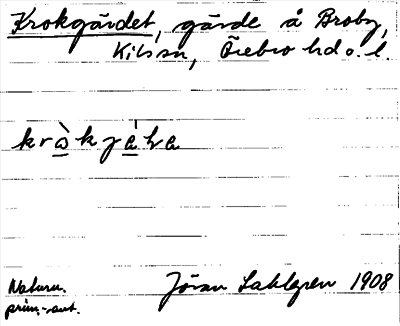 Krokgärdet, gärde å Broby,
Kils sn, Örebro hd o. l.
Naturn.
prim.-ant.
Jöran Sahlgren 1908